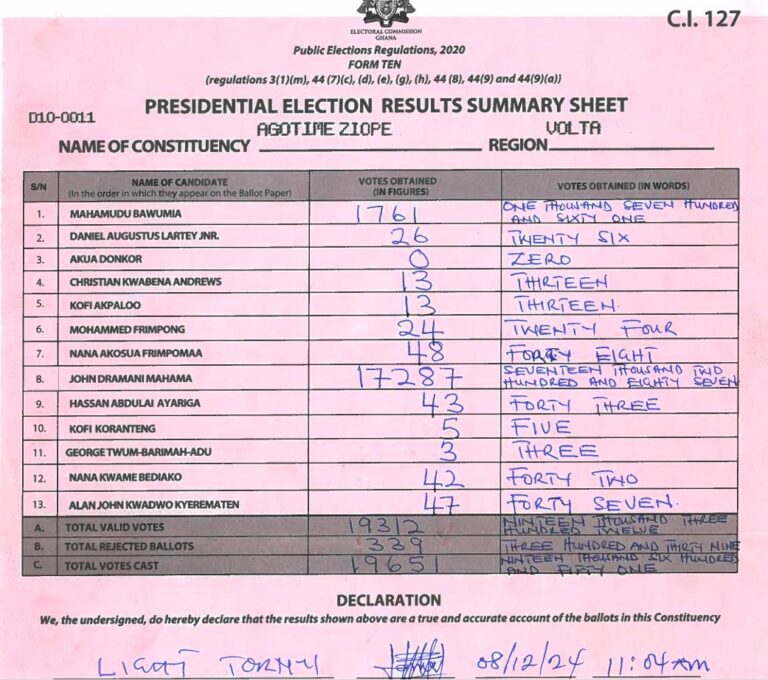 C.I. 127
ELECTORAL COMMISSION
GHANA
Public Elections Regulations, 2020
FORM TEN
(regulations 3(1)(m), 44 (7)(c), (d), (e), (g), (h), 44 (8), 44(9) and 44(9)(a))
PRESIDENTIAL ELECTION RESULTS SUMMARY SHEET
D10-0011
NAME OF CONSTITUENCY AGOTIME ZIOPE REGION VOLTA
S/N NAME OF CANDIDATE (In the order in which they appear on the Ballot Paper) VOTES OBTAINED (IN FIGURES) VOTES OBTAINED (IN WORDS)
1. MAHAMUDU BAWUMIA 1761 ONE THOUSAND SEVEN HUNDRED AND SIXTY ONE
2. DANIEL AUGUSTUS LARTEY JNR. 26 TWENTY SIX
3. AKUA DONKOR 0 ZERO
4. CHRISTIAN KWABENA ANDREWS 13 THIRTEEN
5. KOFI AKPALOO 13 THIRTEEN.
6. MOHAMMED FRIMPONG 24 TWENTY FOUR
7. NANA AKOSUA FRIMPOMAA 48 FORTY EIGHT
8. JOHN DRAMANI MAHAMA 17287 SEVENTEEN THOUSAND TWO HUNDRED AND EIGHTY SEVEN
9. HASSAN ABDULAI AYARIGA 43 FORTY THREE
10. KOFI KORANTENG 5 FIVE
11. GEORGE TWUM-BARIMAH-ADU 3 THREE
12. NANA KWAME BEDIAKO 42 FORTY TWO
13. ALAN JOHN KWADWO KYEREMATEN 47 FORTY SEVEN.
A. TOTAL VALID VOTES 19312 NINTEEN THOUSAND THREE HUNDRED TWELVE
B. TOTAL REJECTED BALLOTS 339 THREE HUNDRED AND THIRTY NINE
C. TOTAL VOTES CAST 19651 NINTEEN THOUSAND SIX HUNDRED AND FIFTY ONE
DECLARATION
We, the undersigned, do hereby declare that the results shown above are a true and accurate account of the ballots in this Constituency
LIGHT TORNY 08/12/24 11:04am